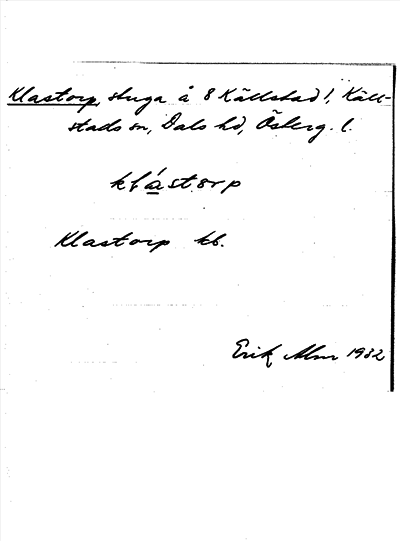 Klastorp, stuga å 8 Källstad 1, Käll-
stads sn, Dals hd, Österg. l.
klástorp
Klastorp kb.
Erik Alm 1932